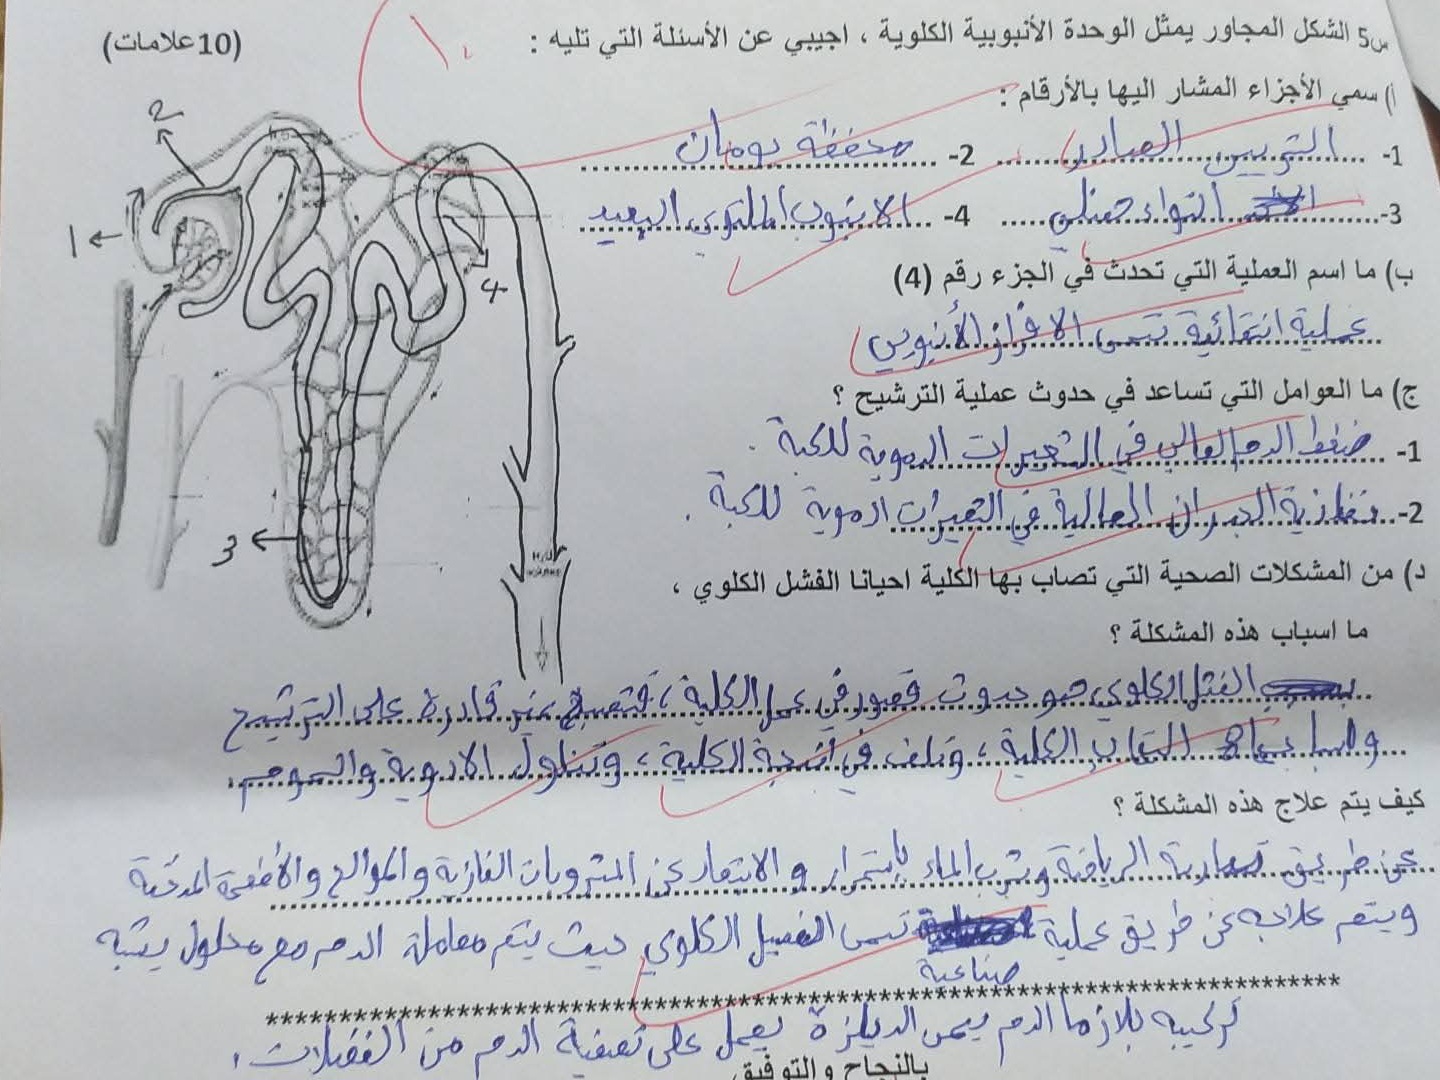 س5 الشكل المجاور يمثل الوحدة الأنبوبية الكلوية ، اجيبي عن الأسئلة التي تليه : (10علامات)
أ) سمي الأجزاء المشار اليها بالأرقام :
1- الشريين الصادر 2- محفظة بومان
3- التواء هنلي 4- الانبوب الملتوي البعيد
ب) ما اسم العملية التي تحدث في الجزء رقم (4)
عملية انتقائية تسمى الافراز الأنبوبي
ج) ما العوامل التي تساعد في حدوث عملية الترشيح ؟
1- ضغط الدم العالي في الشعيرات الدموية للكبة .
2- نفاذية الجدران العالية في الشعيرات الدموية للكبة .
د) من المشكلات الصحية التي تصاب بها الكلية احيانا الفشل الكلوي ،
ما اسباب هذه المشكلة ؟
الفشل الكلوي هو حدوث قصور في عمل الكلية ، فتصبح غير قادرة على الترشيح
واسبابها التهاب الكلية ، وتلف في أنسجة الكلية ، وتناول الادوية والسموم .
كيف يتم علاج هذه المشكلة ؟
عن طريق ممارسة الرياضة وشرب الماء باستمرار و الابتعاد عن المشروبات الغازية و الموالح و الأطعمة
ويتم علاجه عن طريق عملية صناعية تسمى الغسيل الكلوي حيث يتم معاملة الدم مع محلول يشبه
********************
تركيبه بلازما الدم يسمى الديلزة يعمل على تصفية الدم من الفضلات .
بالنجاح والتوفيق
1
2
3
4